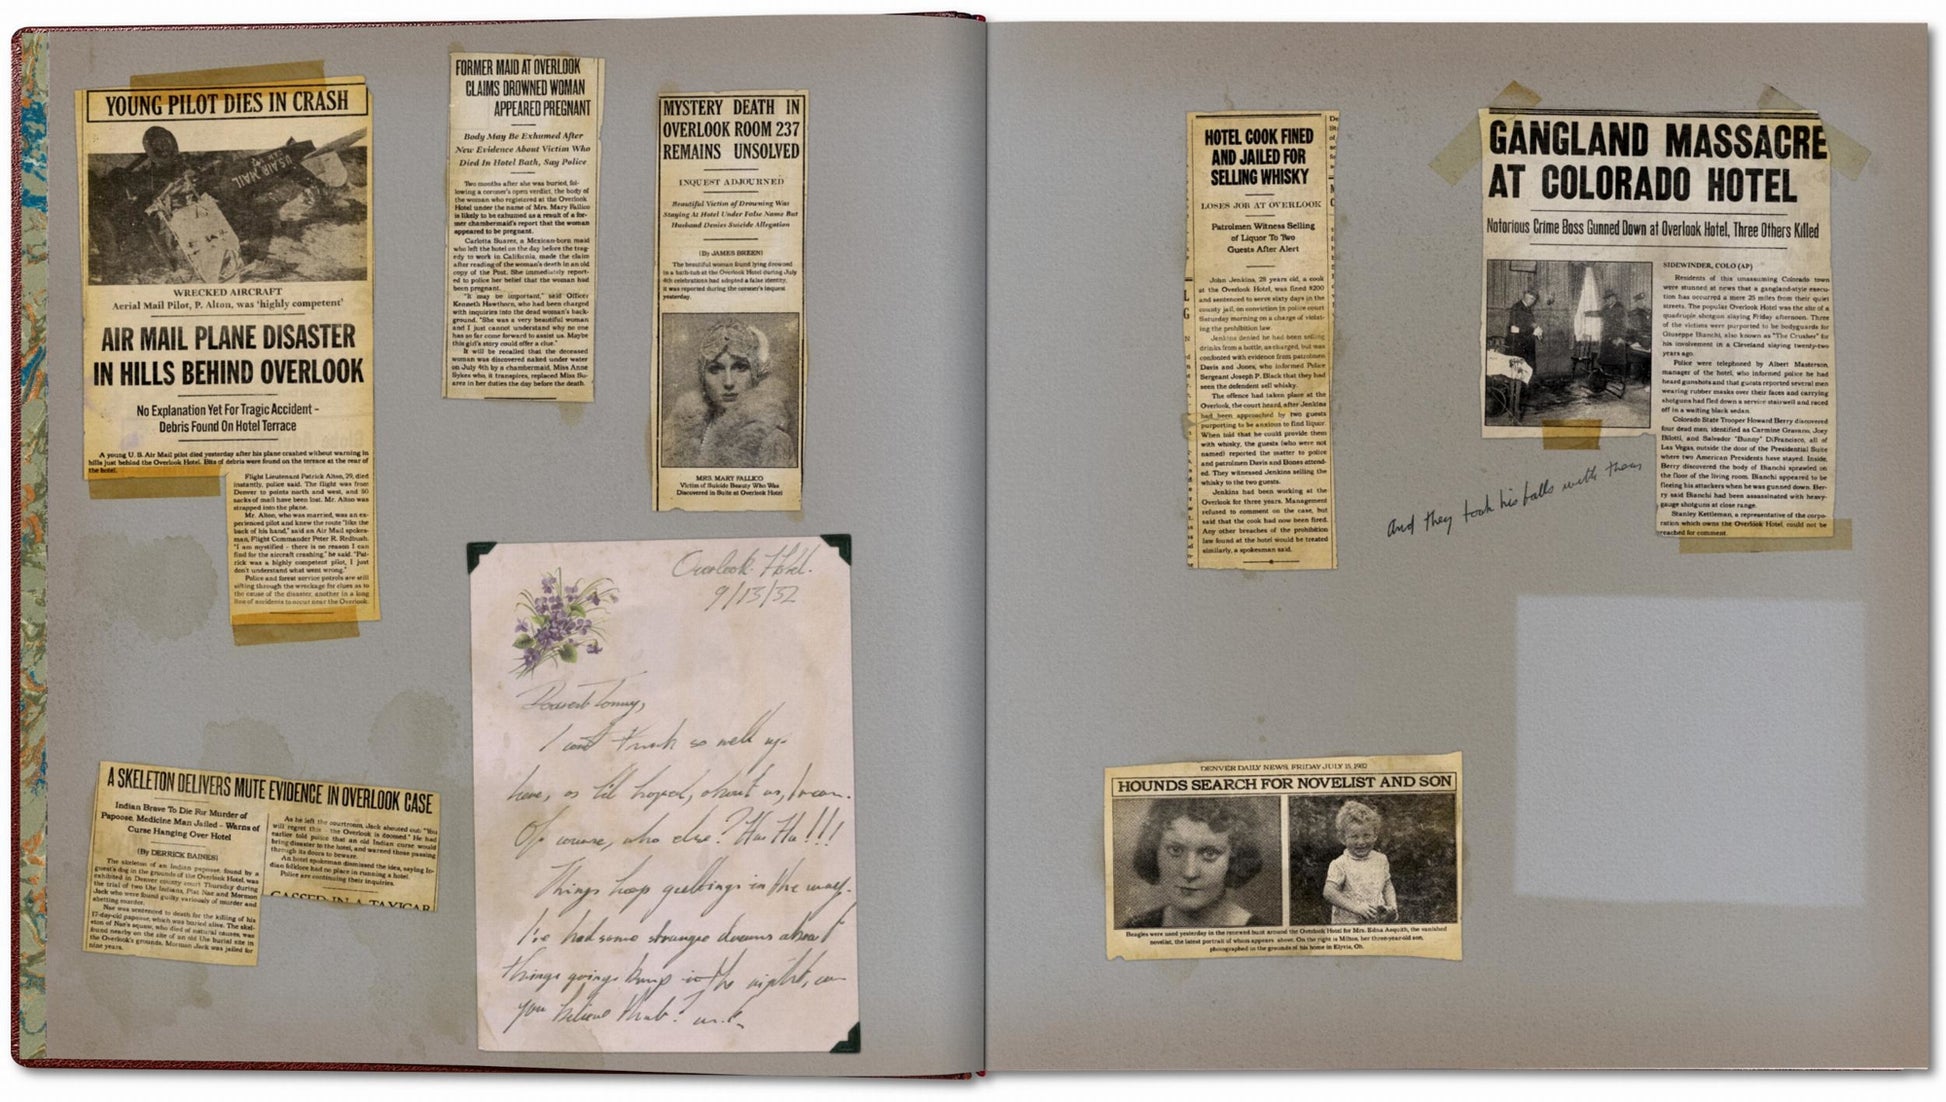 YOUNG PILOT DIES IN CRASH
WRECKED AIRCRAFT
Aerial Mail Pilot, P. Alton, was 'highly competent'
AIR MAIL PLANE DISASTER
IN HILLS BEHIND OVERLOOK
No Explanation Yet For Tragic Accident –
Debris Found On Hotel Terrace
A young U.S. Air Mail pilot died yesterday after his plane crashed without warning in
hills just behind the Overlook Hotel. Bits of debris were found on the terrace at the rear of
the hotel.
Flight Lieutenant Patrick Alton, 29, died
instantly, police said. The flight was from
Denver to points north and west, and 50
sacks of mail have been lost. Mr. Alton was
strapped into the plane.
Mr. Alton, who was married, was an ex-
perienced pilot and knew the route "like the
back of his hand," said an Air Mail spokes-
man, Flight Commander Peter R. Redbush.
"I am mystified – there is no reason I can
find for the aircraft crashing," he said. "Pat-
rick was a highly competent pilot, I just
don't understand what went wrong."
Police and forest service patrols are still
sifting through the wreckage for clues as to
the cause of the disaster, another in a long
line of accidents to occur near the Overlook.
FORMER MAID AT OVERLOOK
CLAIMS DROWNED WOMAN
APPEARED PREGNANT
Body May Be Exhumed After
New Evidence About Victim Who
Died In Hotel Bath, Say Police
Two months after she was buried, fol-
lowing a coroner's open verdict, the body of
the woman who registered at the Overlook
Hotel under the name of Mrs. Mary Fallico
is likely to be exhumed as a result of a for-
mer chambermaid's report that the woman
appeared to be pregnant.
Carlotta Suarez, a Mexican-born maid
who left the hotel on the day before the trag-
edy to work in California, made the claim
after reading of the woman's death in an old
copy of the Post. She immediately report-
ed to police her belief that the woman had
been pregnant.
"It may be important," said Officer
Kenneth Hawthorn, who had been charged
with inquiries into the dead woman's back-
ground. "She was a very beautiful woman
and I just cannot understand why no one
has so far come forward to assist us. Maybe
this girl's story could offer a clue."
It will be recalled that the deceased
woman was discovered naked under water
on July 4th by a chambermaid, Miss Anne
Sykes who, it transpires, replaced Miss Su-
arez in her duties the day before the death.
MYSTERY DEATH IN
OVERLOOK ROOM 237
REMAINS UNSOLVED
INQUEST ADJOURNED
Beautiful Victim of Drowning Was
Staying At Hotel Under False Name But
Husband Denies Suicide Allegation
(By JAMES BREEN)
The beautiful woman found lying drowned
in a bath-tub at the Overlook Hotel during July
4th celebrations had adopted a false identity,
it was reported during the coroner's inquest
yesterday.
MRS. MARY FALLICO
Victim of Suicide Beauty Who Was
Discovered in Suite at Overlook Hotel
A SKELETON DELIVERS MUTE EVIDENCE IN OVERLOOK CASE
Indian Brave To Die For Murder of
Papoose, Medicine Man Jailed – Warns of
Curse Hanging Over Hotel
(By DERRICK BAINES)
The skeleton of an Indian papoose, found by a
guest's dog in the grounds of the Overlook Hotel, was
exhibited in Denver county court Thursday during
the trial of two Ute Indians, Plat Nae and Mormon
Jack who were found guilty variously of murder and
abetting murder.
Nae was sentenced to death for the killing of his
17-day-old papoose, which was buried alive. The skel-
eton of Nae's squaw, who died of natural causes, was
found nearby on the site of an old Ute burial site in
the Overlook's grounds. Mormon Jack was jailed for
nine years.
As he left the courtroom, Jack shouted out: "You
will regret this – the Overlook is doomed." He had
earlier told police that an old Indian curse would
bring disaster to the hotel, and warned those passing
through its doors to beware.
An hotel spokesman dismissed the idea, saying In-
dian folklore had no place in running a hotel.
Police are continuing their inquiries.
GASSED IN A TAXICAB
Overlook Hotel.
9/13/32
Dearest Tommy,
I can't think so well up
here, as I'd hoped, about us, I mean.
Of course, who else? Ha Ha!!!
Things keep getting in the way.
I've had some strange dreams about
things going bump in the night, can
you believe that?
HOTEL COOK FINED
AND JAILED FOR
SELLING WHISKY
LOSES JOB AT OVERLOOK
Patrolmen Witness Selling
of Liquor To Two
Guests After Alert
John Jenkins, 28 years old, a cook
at the Overlook Hotel, was fined $200
and sentenced to serve sixty days in the
county jail, on conviction in police court
Saturday morning on a charge of violat-
ing the prohibition law.
Jenkins denied he had been selling
drinks from a bottle, as charged, but was
confronted with evidence from patrolmen
Davis and Jones, who informed Police
Sergeant Joseph P. Black that they had
seen the defendent sell whisky.
The offence had taken place at the
Overlook, the court heard, after Jenkins
had been approached by two guests
purporting to be anxious to find liquor.
When told that he could provide them
with whisky, the guests (who were not
named) reported the matter to police
and patrolmen Davis and Bones attend-
ed. They witnessed Jenkins selling the
whisky to the two guests.
Jenkins had been working at the
Overlook for three years. Management
refused to comment on the case, but
said that the cook had now been fired.
Any other breaches of the prohibition
law found at the hotel would be treated
similarly, a spokesman said.
GANGLAND MASSACRE
AT COLORADO HOTEL
Notorious Crime Boss Gunned Down at Overlook Hotel, Three Others Killed
SIDEWINDER, COLO (AP)
Residents of this unassuming Colorado town
were stunned at news that a gangland-style execu-
tion has occurred a mere 25 miles from their quiet
streets. The popular Overlook Hotel was the site of a
quadruple shotgun slaying Friday afternoon. Three
of the victims were purported to be bodyguards for
Giuseppe Bianchi, also known as "The Crusher" for
his involvement in a Cleveland slaying twenty-two
years ago.
Police were telephoned by Albert Masterson,
manager of the hotel, who informed police he had
heard gunshots and that guests reported several men
wearing rubber masks over their faces and carrying
shotguns had fled down a service stairwell and raced
off in a waiting black sedan.
Colorado State Trooper Howard Berry discovered
four dead men, identified as Carmine Gravano, Joey
Bilotti, and Salvador "Bunny" DiFrancisco, all of
Las Vegas, outside the door of the Presidential Suite
where two American Presidents have stayed. Inside,
Berry discovered the body of Bianchi sprawled on
the floor of the living room. Bianchi appeared to be
fleeing his attackers when he was gunned down. Ber-
ry said Bianchi had been assassinated with heavy-
gauge shotguns at close range.
Stanley Kettleman, a representative of the corpo-
ration which owns the Overlook Hotel, could not be
reached for comment.
and they took his balls with them
DENVER DAILY NEWS, FRIDAY JULY 15,
HOUNDS SEARCH FOR NOVELIST AND SON
Beagles were used yesterday in the renewed hunt around the Overlook Hotel for Mrs. Edna Asquith, the vanished
novelist, the latest portrait of whom appears above. On the right is Milton, her three-year-old son,
photographed in the grounds of his home in Elyria, Oh.